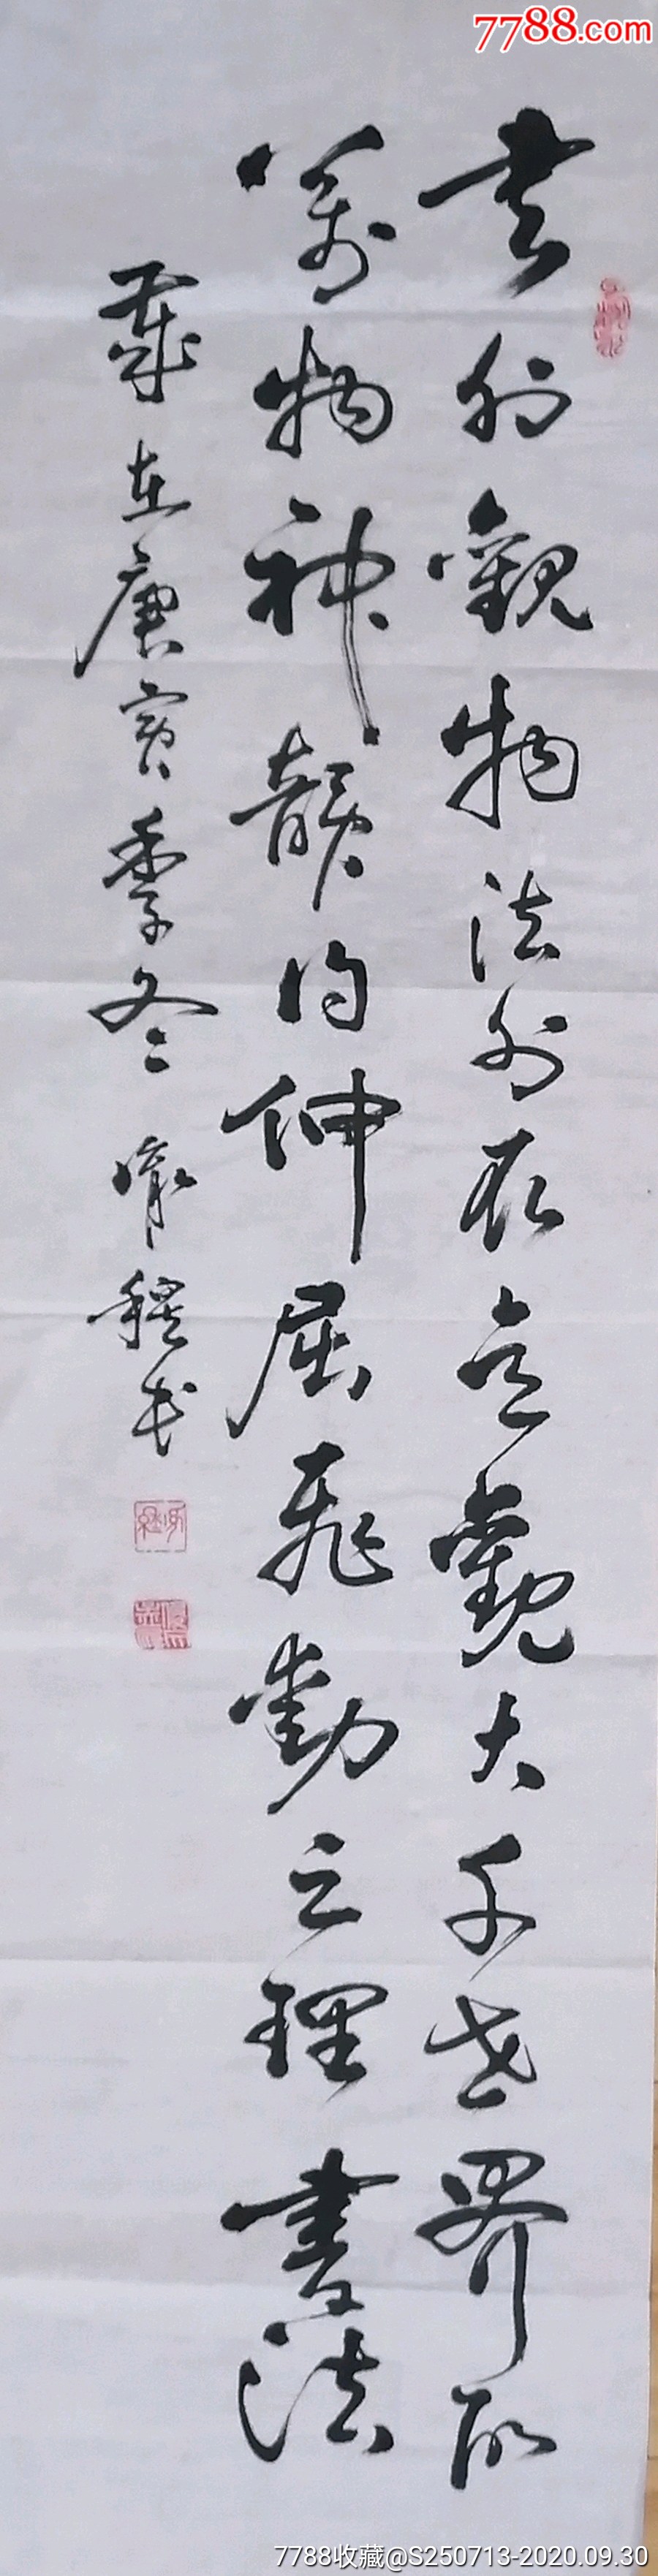 7788.com
書外觀物法外取意觀大千世界取
萬物神韻伸屈飛動之理書法
歲在庚寅季冬書
7788收藏@S250713-2020.09.30